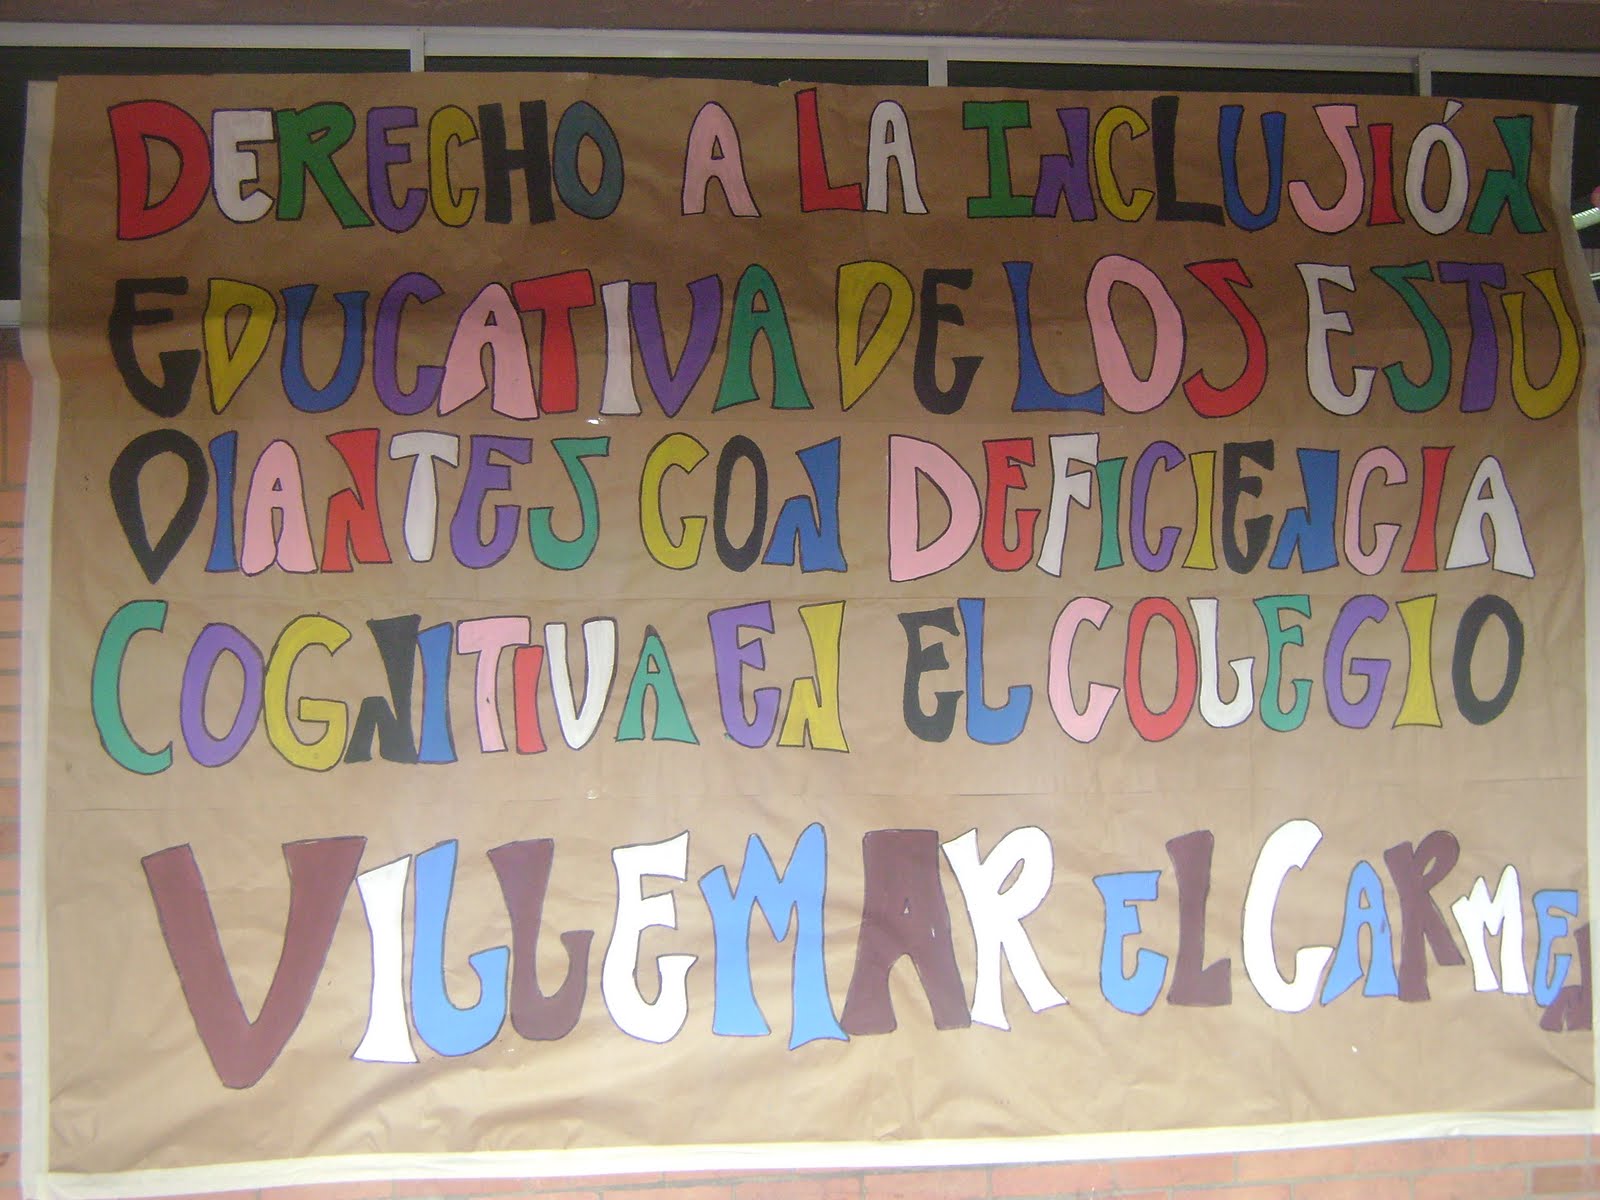 DERECHO A LA INCLUSIÓN
EDUCATIVA DE LOS ESTU
DIANTES CON DEFICIENCIA
COGNITIVA EN EL COLEGIO
VILLEMAR EL CARMEN